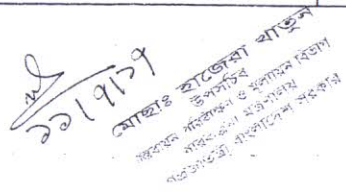 ১১/৭/১৭
মোছাঃ হাজেরা খাতুন
উপসচিব
পরিবীক্ষণ ও মূল্যায়ন বিভাগ
গণপ্রজাতন্ত্রী বাংলাদেশ সরকার